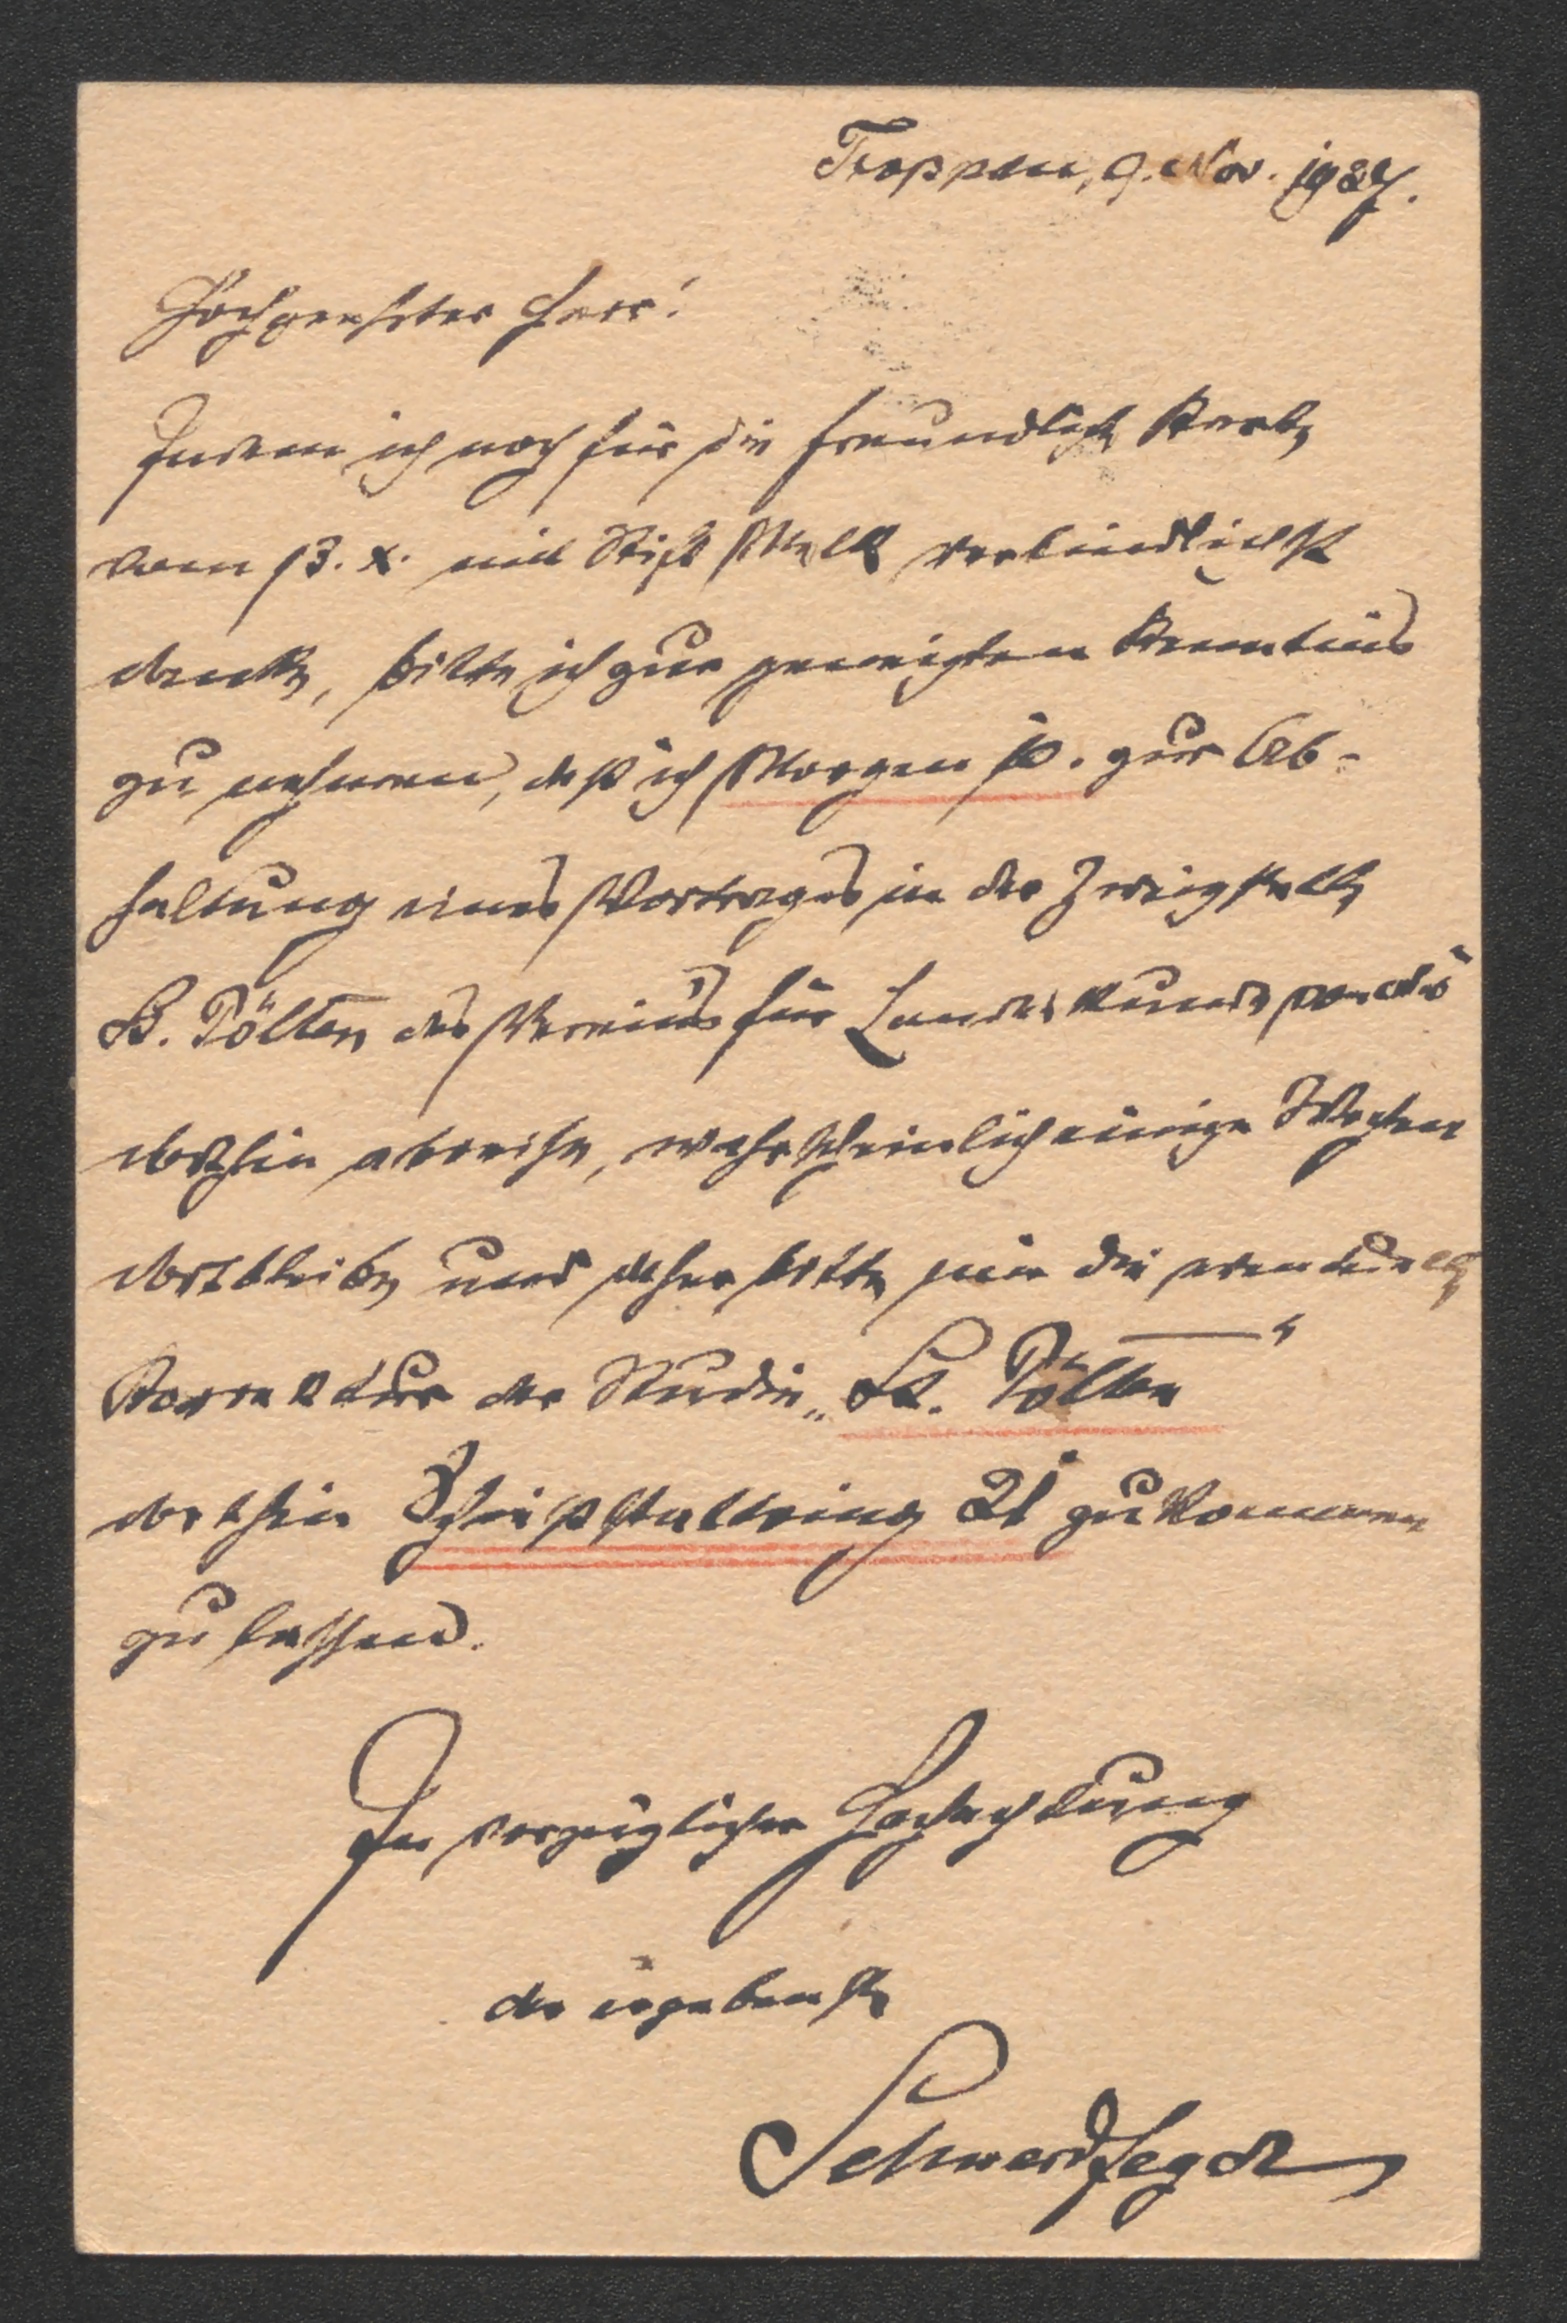 Troppau, 9. Nov. 1937.
Hochgeehrter Herr!
Indem ich noch für die freundliche Karte
vom 13. X. mit Stift Melk verbindlichst
danke, bitte ich zur geneigten Kenntnis
zu nehmen, daß ich Morgen 10. zur Ab-
haltung eines Vortrages in der Zweigstelle
St. Pölten des Vereins für Landeskunde
dorthin abreise, wahrscheinlich einige Wochen
dortbleibe und daher bitte, mir die eventuelle
Korrektur der Studie „St. Pölten“
dorthin Schießstattring 21 zukommen
zu lassen.
In vorzüglicher Hochachtung
der ergebenste
Schwerdfeger